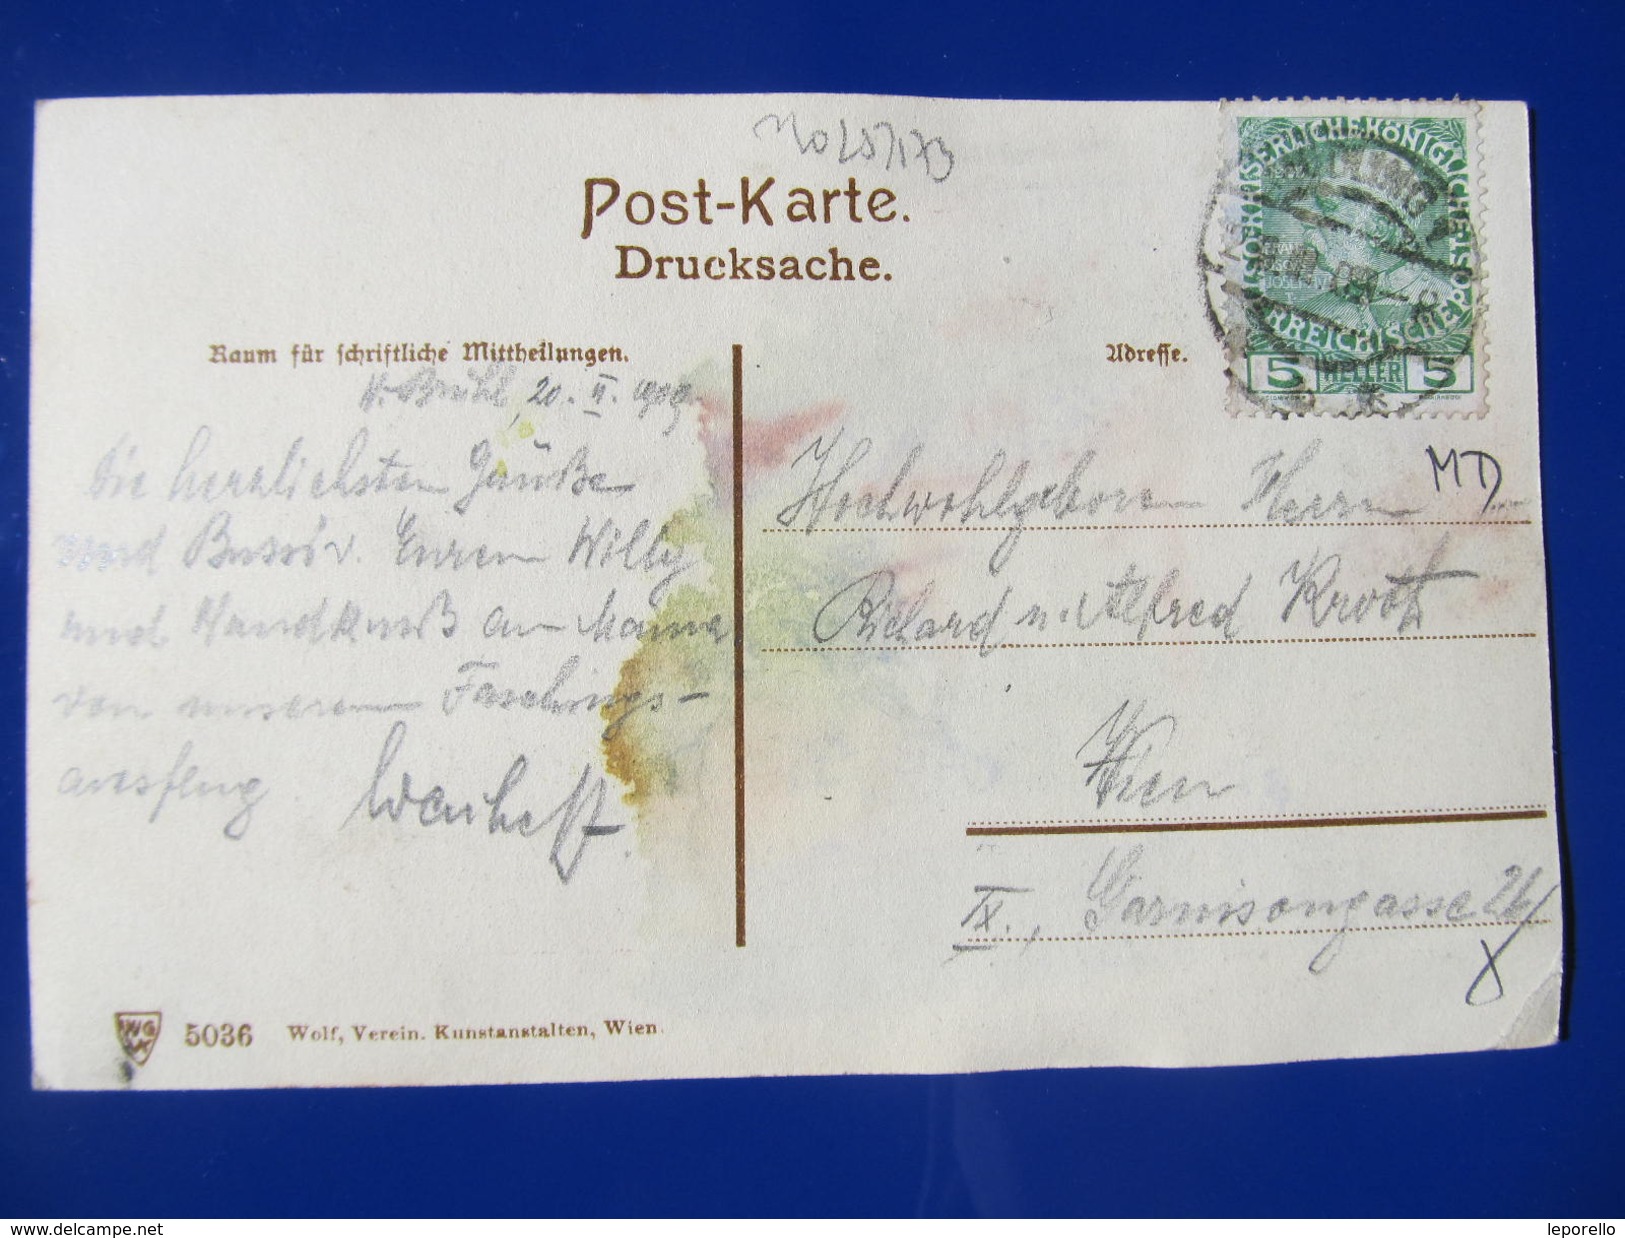 Post-Karte.
Drucksache.
Raum für schriftliche Mittheilungen.
Adresse.
KAISERLICHE KÖNIGLICHE ÖSTERREICHISCHE POST
5 HELLER 5
H. Brühl, 20. II. 1909
Die herzlichsten Grüße
und Bussi v. Euren Willy
und Handkuß an Mama
von unserem Faschings-
ausflug.
Hochwohlgeboren Herrn
Richard u. Alfred
Wien
IX., Garnisongasse
MD
5036 Wolf, Verein. Kunstanstalten, Wien.
www.delcampe.net
leporello